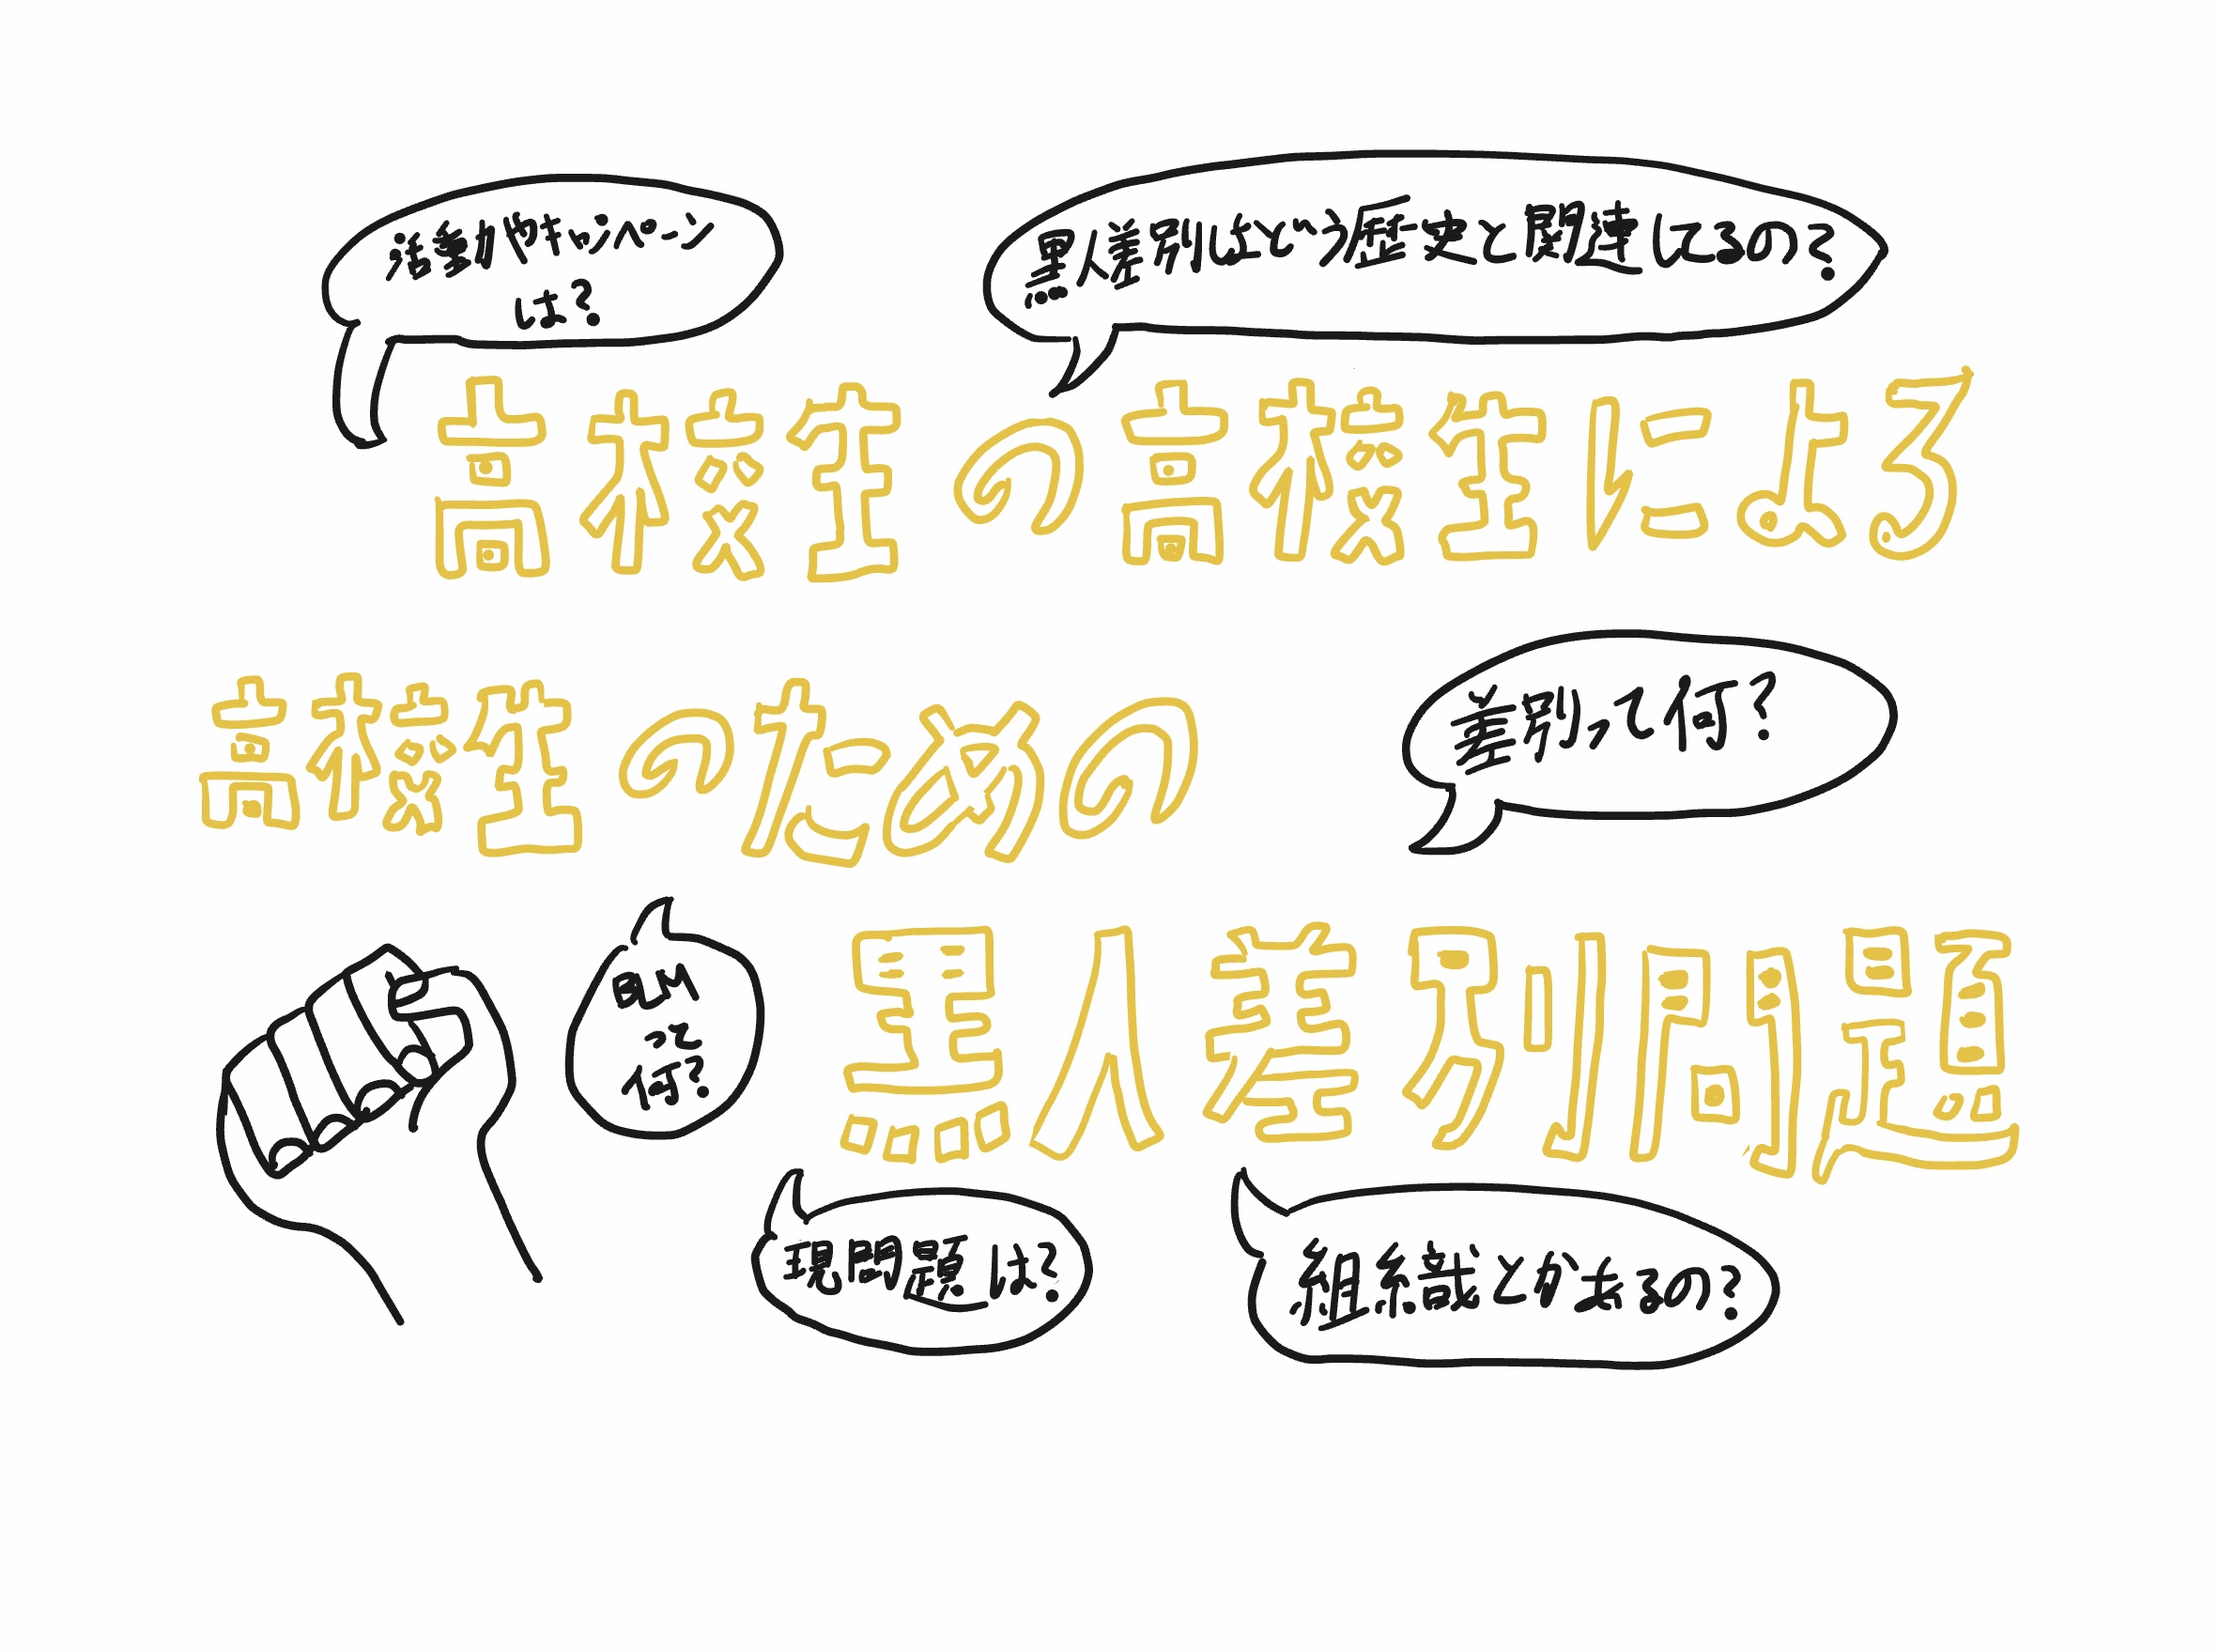 活動やキャンペーン
は?
黒人差別はどういう歴史と関連してるの?
高校生の高校生による
高校生のための
差別って何?
BLM
って
何?
黒人差別問題
現問題は?
組織とかあるの?